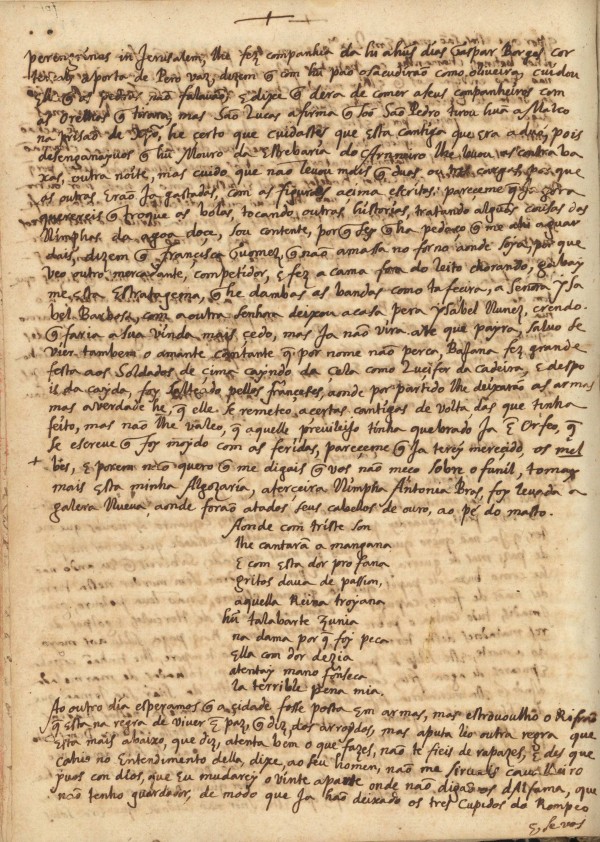 peregrinos in Jerusalem, lhe fez companhia da hi a huns dias Gaspar Borges cor
a porta de Pero vaz, dizem q com hu pao o sacudirão como oliveira, cuidou
elle q as pedras não falavão, E dixe q dera de comer a seus companheiros com
as orelhas q tirara, mas São Lucas afirma q São Pedro tirou huã a Malco
na prisão de he certo que cuidastes que esta cantiga que era a pois
desenganaivos q hu Mouro da Estrebaria do lhe levou as contraba
xas, outra noite, mas cuido que não levou mais q duas ou tres cargas, por que
as outras Erão Ja gastadas com as figuras acima escritas. pareceme q Ja agora
querereis q troque as bolas, tocando outras historias, tratando algũas cousas das
Nimphas da agoa doce, sou contente, por q sey q ha pedaço q me ahi aguar
dais, dizem q francisca Guomez, q não amassa no forno aonde soya, por que
veo outro mercante, competidor, E fez a cama fora do leito chorando, gabay
me esta Estratagema, q lhe dambas as bandas como tafecira, a senora ysa
bel Barbosa, com a outra senhora deixou a casa, pera ysabel Nunez, crendo
q faria a sua vinda mais çedo, mas Ja não vira ate que payra, salvo se
vier tambem o amante constante q por nome não perca, Bassana fez grande
festa aos soldados de cima cayndo da çela como Lucifer da cadeira, E despo
is da cayda, foy salteado pellos franceses, aonde por partido lhe deixarão as armas
mas a verdade he, q elle se remeteo, a certas cantigas de volta das que tinha
feito, mas não lhe valeo, q aquelle previleijo tinha quebrado Ja E Orfeo, q
se escreve q foy moydo com as feridas, pareceme q Ja terey merecido, os mel
+ E porem não quero q me digais q vos não meço sobre o funil, tomay
mais esta minha Algozaria, a terceira Nimpha Antonia Bras, foy levada a
galera Nueva, aonde forão atados seus cabellos de ouro, ao pé do masto.
Aonde com triste son
lhe cantarão a mangana
E com esta dor profana
gritos dava de passion,
aquella Reina troyana
hu talabarte Zunia
na dama por q foy peca
Ella com dor dezia
atentay mano fonseca
la terrible pena mia.
Ao outro dia esperamos q a çidade fosse posta Em armas, mas estrovoulho o Rifão
q esta na regra de viver E paz, q diz, dos arroydos, mas a puta leo outra regra que
esta mais abaixo, que diz, atenta bem o que fazes, não te fieis de rapazes, E des que
cahio no Entendimento della, dixe, ao seu homen, não me sirvais cavalleiro
yvos con dios, que Eu mudarey o vinte a parte onde não digão os dAlfama, que
não tenho guardador, de modo que Ja hão deixado os tres Cupidos do Rompeo
E, se vos